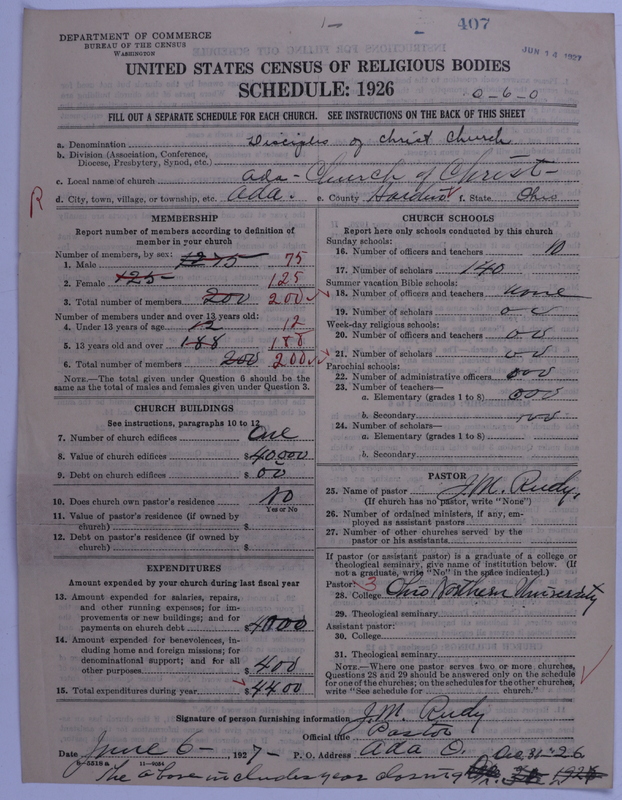 1-
- 407
DEPARTMENT OF COMMERCE
BUREAU OF THE CENSUS
WASHINGTON
JUN 14 1927
UNITED STATES CENSUS OF RELIGIOUS BODIES
SCHEDULE: 1926
0-6-0
FILL OUT A SEPARATE SCHEDULE FOR EACH CHURCH. SEE INSTRUCTIONS ON THE BACK OF THIS SHEET
a. Denomination Disciples of Christ Church
b. Division (Association, Conference, Diocese, Presbytery, Synod, etc.)
c. Local name of church Ada- Church of Christ-
R
d. City, town, village, or township, etc. Ada. e. County Hardin f. State Ohio
MEMBERSHIP
Report number of members according to definition of member in your church
Number of members, by sex:
1. Male 75 75
2. Female 125 125
3. Total number of members 200 200
Number of members under and over 13 years old:
4. Under 13 years of age 12 12
5. 13 years old and over 188 188
6. Total number of members 200 200
NOTE.—The total given under Question 6 should be the same as the total of males and females given under Question 3.
CHURCH BUILDINGS
See instructions, paragraphs 10 to 12
7. Number of church edifices One
8. Value of church edifices $40,000
9. Debt on church edifices $00
10. Does church own pastor's residence No
Yes or No
11. Value of pastor's residence (if owned by church) $
12. Debt on pastor's residence (if owned by church) $
EXPENDITURES
Amount expended by your church during last fiscal year
13. Amount expended for salaries, repairs, and other running expenses; for improvements or new buildings; and for payments on church debt $4000
14. Amount expended for benevolences, including home and foreign missions; for denominational support; and for all other purposes $400
15. Total expenditures during year $4400
CHURCH SCHOOLS
Report here only schools conducted by this church
Sunday schools:
16. Number of officers and teachers 10
17. Number of scholars 140
Summer vacation Bible schools:
18. Number of officers and teachers none
19. Number of scholars 00
Week-day religious schools:
20. Number of officers and teachers 00
21. Number of scholars 00
Parochial schools:
22. Number of administrative officers 000
23. Number of teachers—
a. Elementary (grades 1 to 8) 000
b. Secondary 000
24. Number of scholars—
a. Elementary (grades 1 to 8)
b. Secondary
PASTOR
25. Name of pastor J.M. Rudy,
(If church has no pastor, write "None")
26. Number of ordained ministers, if any, employed as assistant pastors
27. Number of other churches served by the pastor or his assistants
If pastor (or assistant pastor) is a graduate of a college or theological seminary, give name of institution below. (If not a graduate, write "No" in the space indicated.)
Pastor: 3
28. College Ohio Northern University
29. Theological seminary
Assistant pastor:
30. College
31. Theological seminary
NOTE.—Where one pastor serves two or more churches, Questions 28 and 29 should be answered only on the schedule for one of the churches; on the schedules for the other churches, write "See schedule for church."
Signature of person furnishing information J.M. Rudy
Official title Pastor
Date June 6-, 1927- P. O. Address Ada O.
8-5319a 11-9054
Dec, 31-26
The above includes year closing